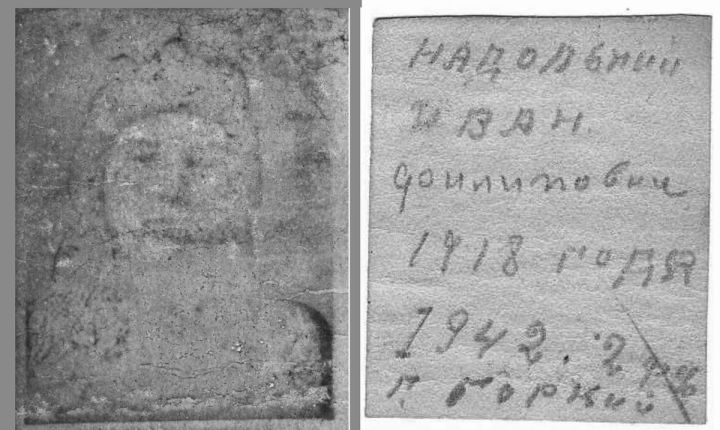 НАДОЛЬНИЙ
ИВАН
Филипович
1918 года
1942. 2
г. Горкий